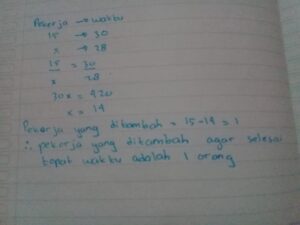 Pekerja → waktu
15 → 30
x → 28
15 = 30
x 28
30x = 420
x = 14
Pekerja yang ditambah = 15-14 = 1
∴ pekerja yang ditambah agar selesai
tepat waktu adalah 1 orang